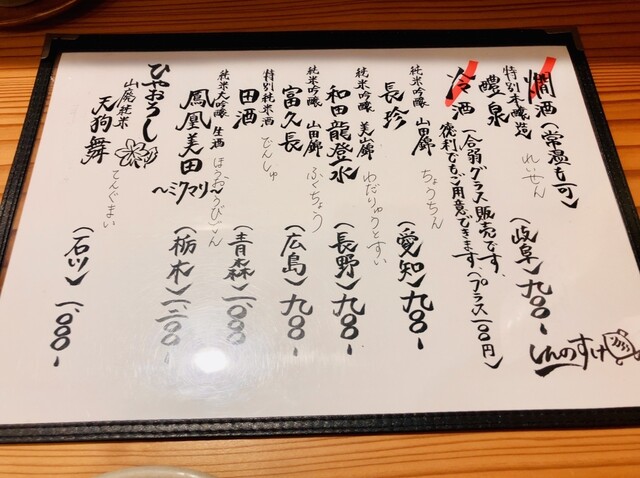 燗酒(常温も可)
特別本醸造
醴泉 れいせん (岐阜)九〇〇-
冷酒 (一合弱グラス販売です、
徳利でもご用意できます。(プラス一〇〇円)
純米吟醸 山田錦
長珍 ちょうちん (愛知)九〇〇-
純米吟醸 美山錦
和田龍登水 わだりゅうとすい (長野)九〇〇-
純米吟醸 山田錦
富久長 ふくちょう (広島)九〇〇-
特別純米酒
田酒 でんしゅ (青森)一、〇〇〇-
純米大吟醸 生酒
鳳凰美田 ほうおうびでん
〜ミクマリ〜 (栃木)一、二〇〇-
ひやおろし
山廃純米
天狗舞 てんぐまい (石川)一、〇〇〇-
しんのすけ